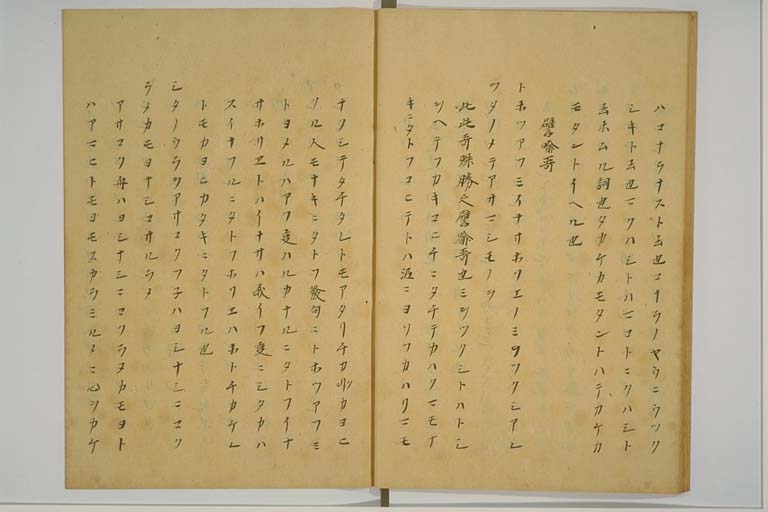 ハコナラナストム也コナラノヤウニウツク
シキト云也マクハシトハマコトニクハシト
云ホムル詞也タカケカモタントハテカケカ
モタントイヘル也
譬喩哥
トホツアフミイナサホリエノミヲツクシアレ
ツタノメテアサマシモノヲ
此哥殊勝之譬喩哥也ミヲツクシトハトシ
シヘテフカキコニチニタチテカハリマモナ
キニタトフコヒテトハ涯ニヨリフカハリマモ
ナノシテタチタレトモアタリチカリカヨヒ
ソル人モナキニタトフ發句ニトホツアフミ
トヨメルハアフ事ハルカナルニタトフイナ
サホリエトハイナサハ我イフ事ニシタカハ
スイナフルニタトフホリエハホトチカケレ
トモカヨヒカタキニタトフル也
シタノウラヲアサコクフ子ハヨシナシニコク
ラメカモヨナシコサルラメ
アサコク舟ハヨシナシニコクラメカモヨト
ハアマヒトモヨモスカラミルメニ心シカケ